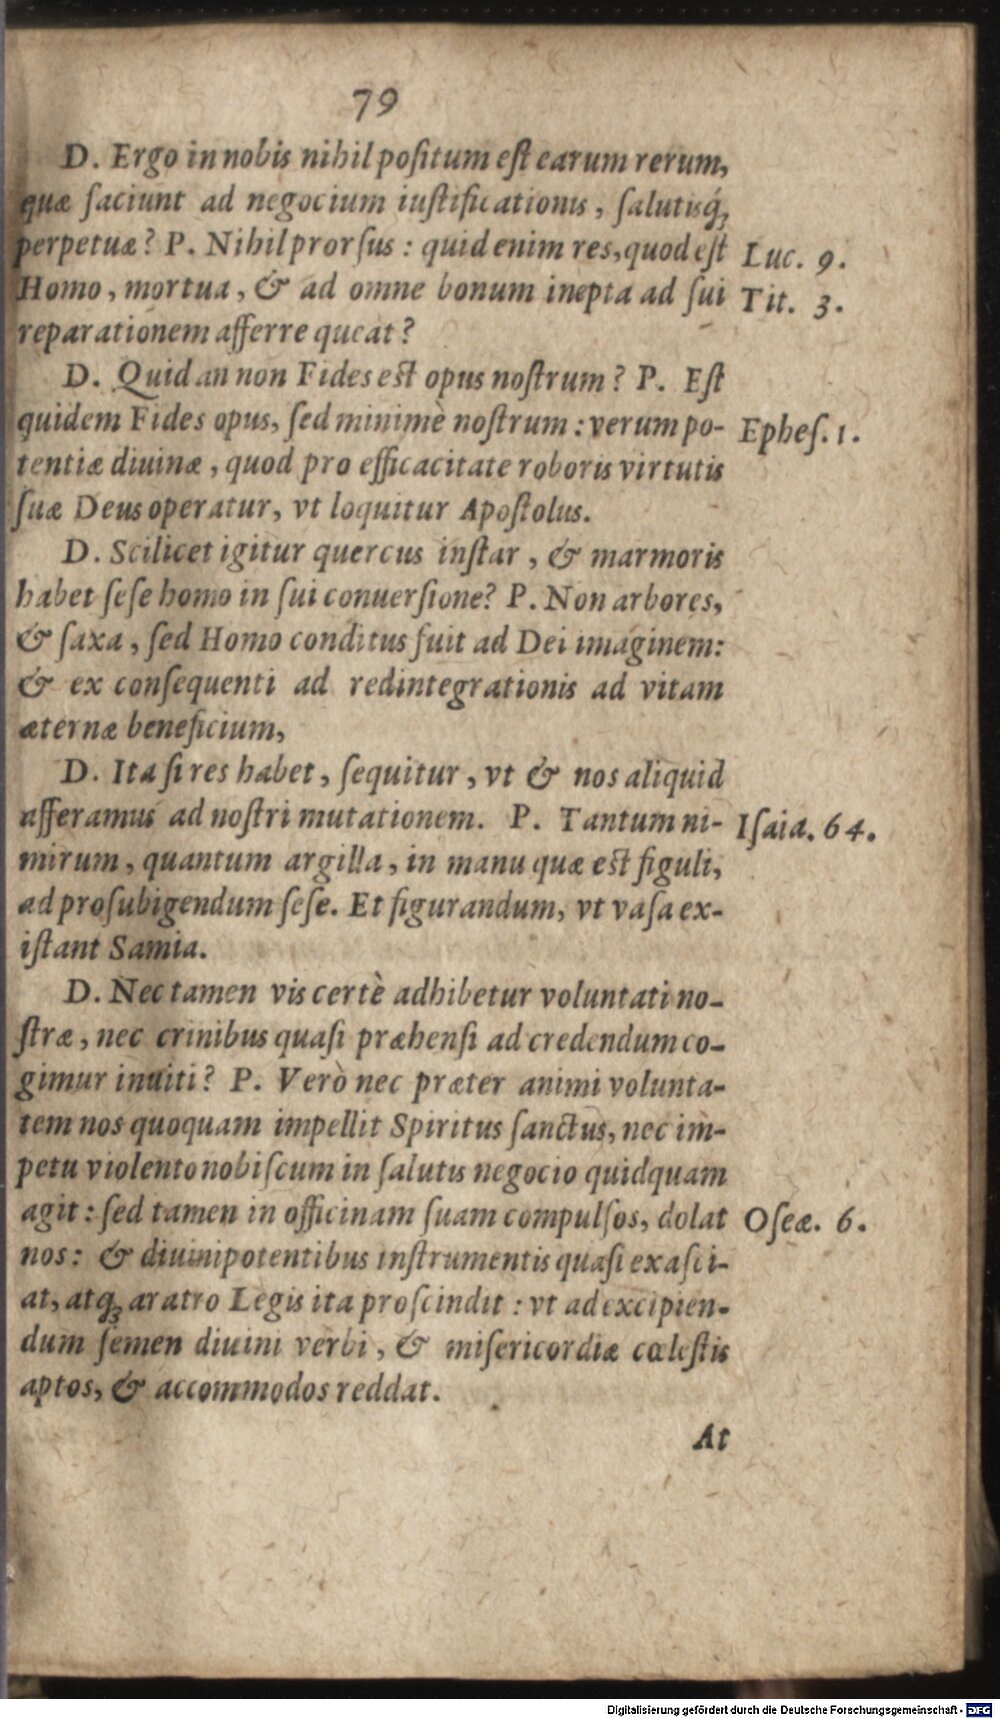 79
D. Ergo in nobis nihil positum est earum rerum,
quæ faciunt ad negocium iustificationis, salutisq́;
perpetuæ? P. Nihil prorsus: quid enim res, quod est Luc. 9.
Homo, mortua, & ad omne bonum inepta ad sui Tit. 3.
reparationem afferre queat?
D. Quid an non Fides est opus nostrum? P. Est
quidem Fides opus, sed minimè nostrum: verum po- Ephes. 1.
tentiæ diuinæ, quod pro efficacitate roboris virtutis
suæ Deus operatur, vt loquitur Apostolus.
D. Scilicet igitur quercus instar, & marmoris
habet sese homo in sui conuersione? P. Non arbores,
& saxa, sed Homo conditus fuit ad Dei imaginem:
& ex consequenti ad redintegrationis ad vitam
æternæ beneficium,
D. Ita si res habet, sequitur, vt & nos aliquid
afferamus ad nostri mutationem. P. Tantum ni- Isaia. 64.
mirum, quantum argilla, in manu quæ est figuli,
ad prosubigendum sese. Et figurandum, vt vasa ex-
istant Samia.
D. Nec tamen vis certè adhibetur voluntati no-
stræ, nec crinibus quasi præhensi ad credendum co-
gimur inuiti? P. Verò nec præter animi volunta-
tem nos quoquam impellit Spiritus sanctus, nec im-
petu violento nobiscum in salutis negocio quidquam
agit: sed tamen in officinam suam compulsos, dolat Oseæ. 6.
nos: & diuinipotentibus instrumentis quasi exasci-
at, atq; aratro Legis ita proscindit: vt ad excipien-
dum semen diuini verbi, & misericordiæ cœlestis
aptos, & accommodos reddat.
At
Digitalisierung gefördert durch die Deutsche Forschungsgemeinschaft - DFG